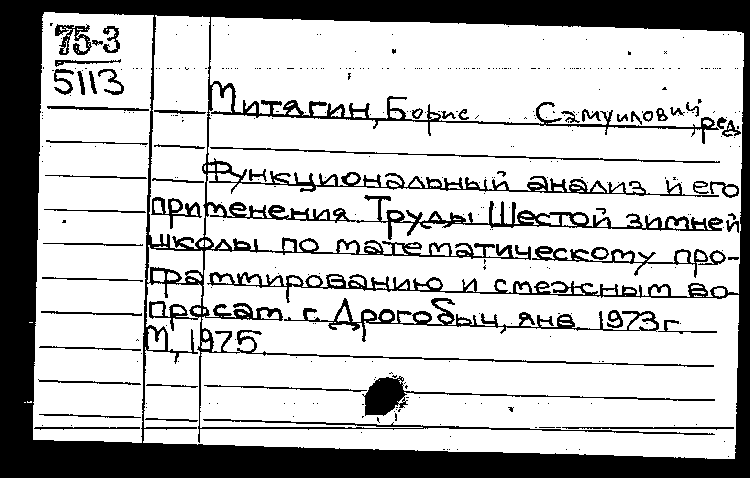 75-3
5113
Митягин, Борис Самуилович, ред.
Функциональный анализ и его
применения. Труды Шестой зимней
школы по математическому про-
граммированию и смежным во-
просам. г. Дрогобыч, янв. 1973 г.
М., 1975.